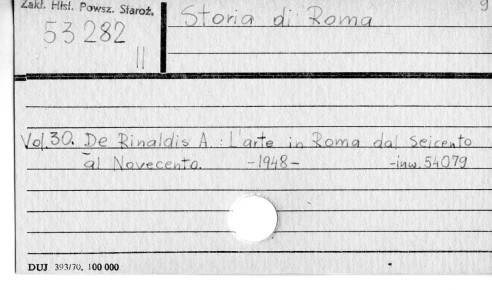 Zakł. Hist. Powsz. Staroż.
Storia di Roma
9
53 282
II
Vol.30. De Rinaldis A.: L'arte in Roma dal Seicento
al Novecento. -1948- -inw.54079
DUJ 393/70. 100 000